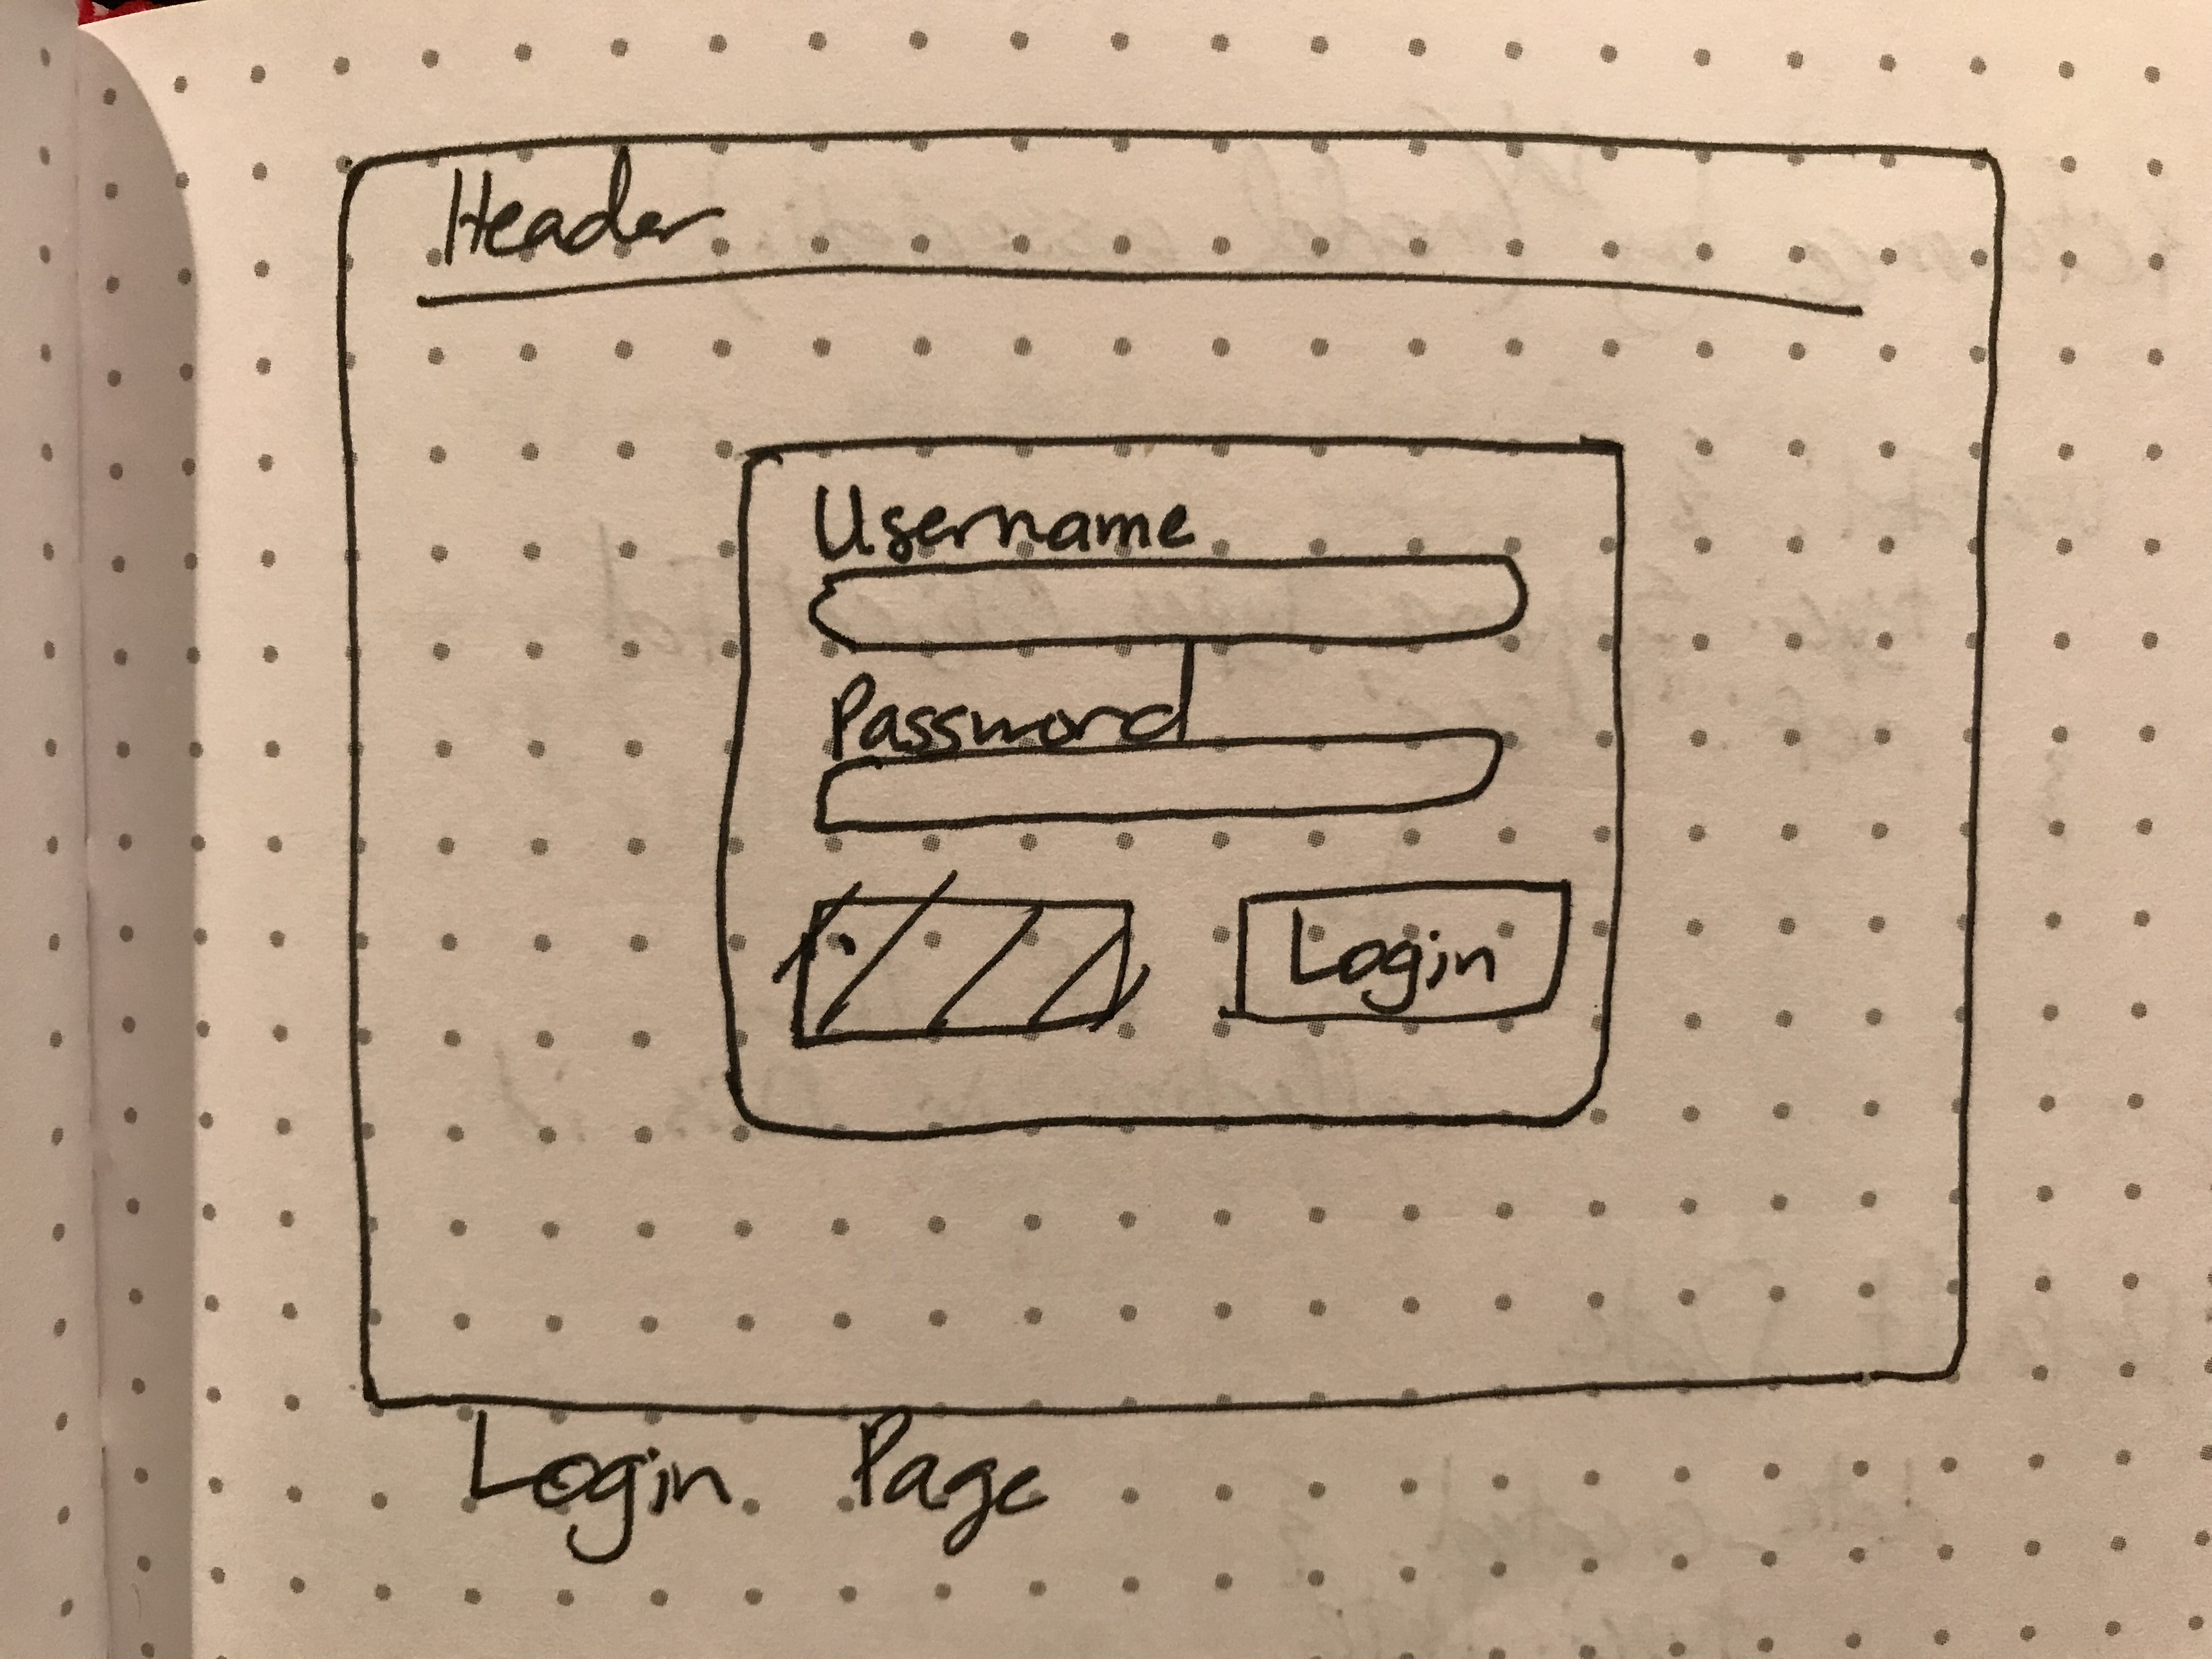 Header
Username
Password
Login
Login Page